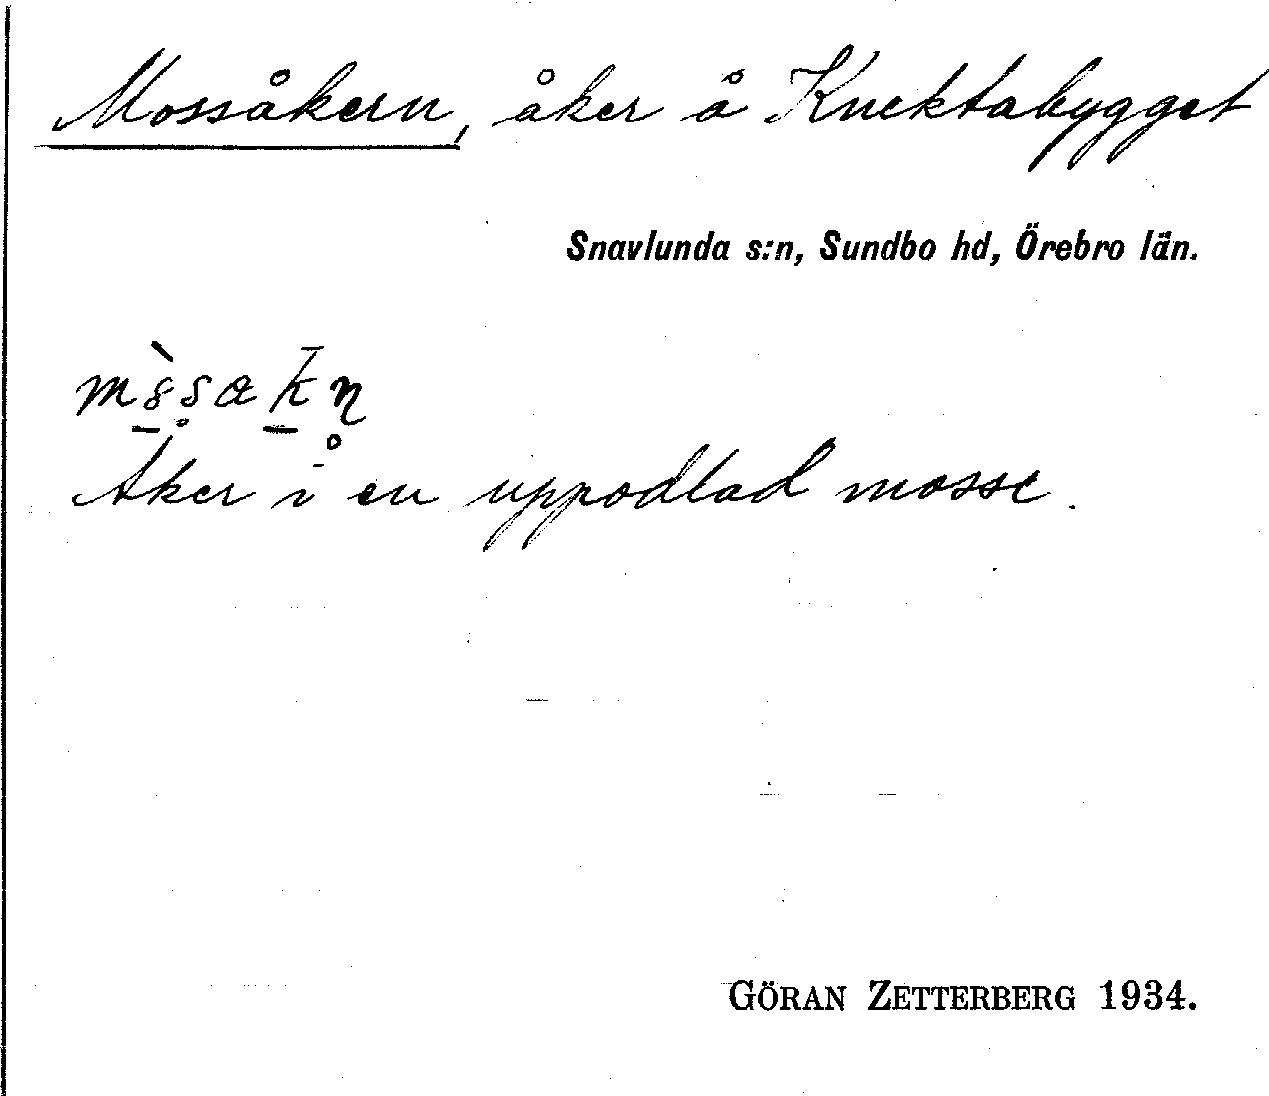 Mossåkern, åker å Knektabygget
Snavlunda s:n, Sundbo hd, Örebro län.
Åker i en uppodlad mosse.
GÖRAN ZETTERBERG 1934.